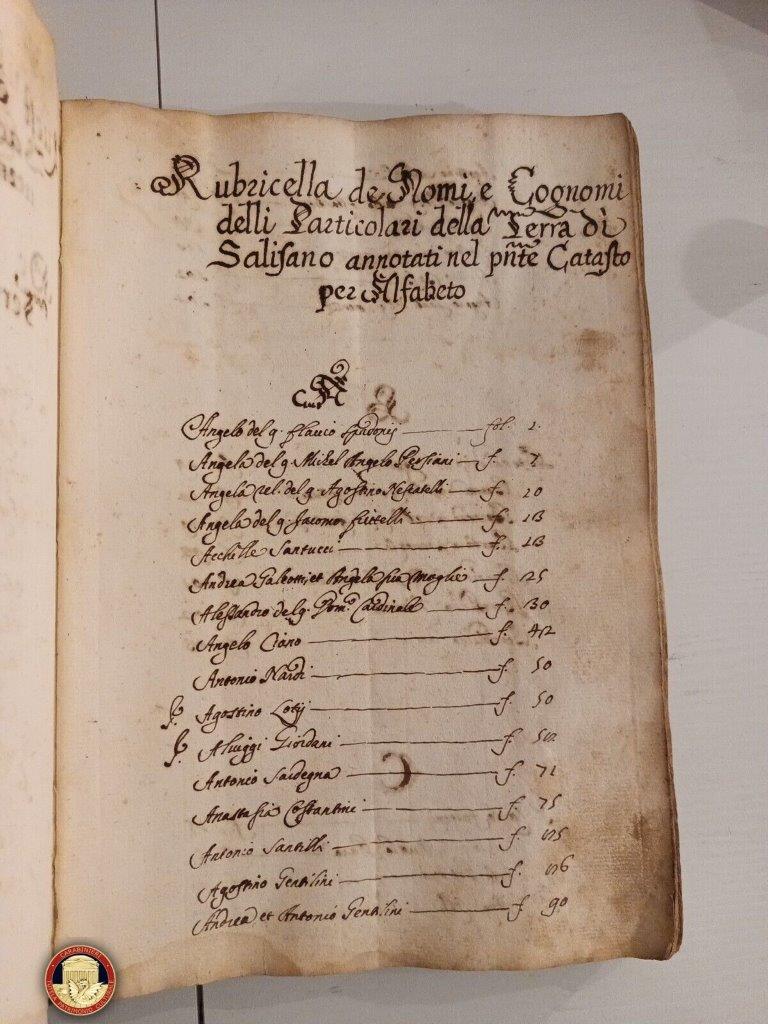 Rubricella de Nomi e Cognomi
delli Particolari della Terra di
Salisano annotati nel pñte Catasto
per Alfabeto
A
Angelo del q. Flavio fol. 1
Angela del q. Michel Angelo Persiani f. 7
Angela del q. Agostino f. 10
Angela del q. Jacomo f. 18
Acchille Santucci f. 18
Andrea Galeotti, et Angela sua Moglie f. 25
Alessandro del q. Dom.co Cardinale f. 30
Angelo Ciano f. 42
Antonio Nardi f. 50
Agostino Lotij f. 50
Aluiggi Giordani f.
Antonio Sardegna f. 71
Anastasia Costantini f. 75
Antonio Santilli f.
Agostino Gentilini f.
Andrea et Antonio Gentilini f. 90
CARABINIERI
TUTELA PATRIMONIO CULTURALE